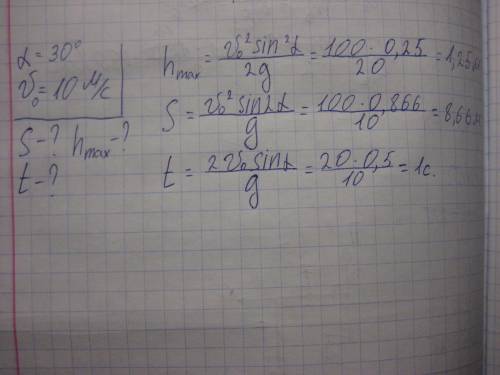 α = 30°
v₀ = 10 м/с
S - ? hmax - ?
t - ?
hmax = v₀² sin²α / 2g = 100 · 0,25 / 20 = 1,25 м
S = v₀² sin2α / g = 100 · 0,866 / 10 = 8,66 м
t = 2v₀ sinα / g = 20 · 0,5 / 10 = 1с.